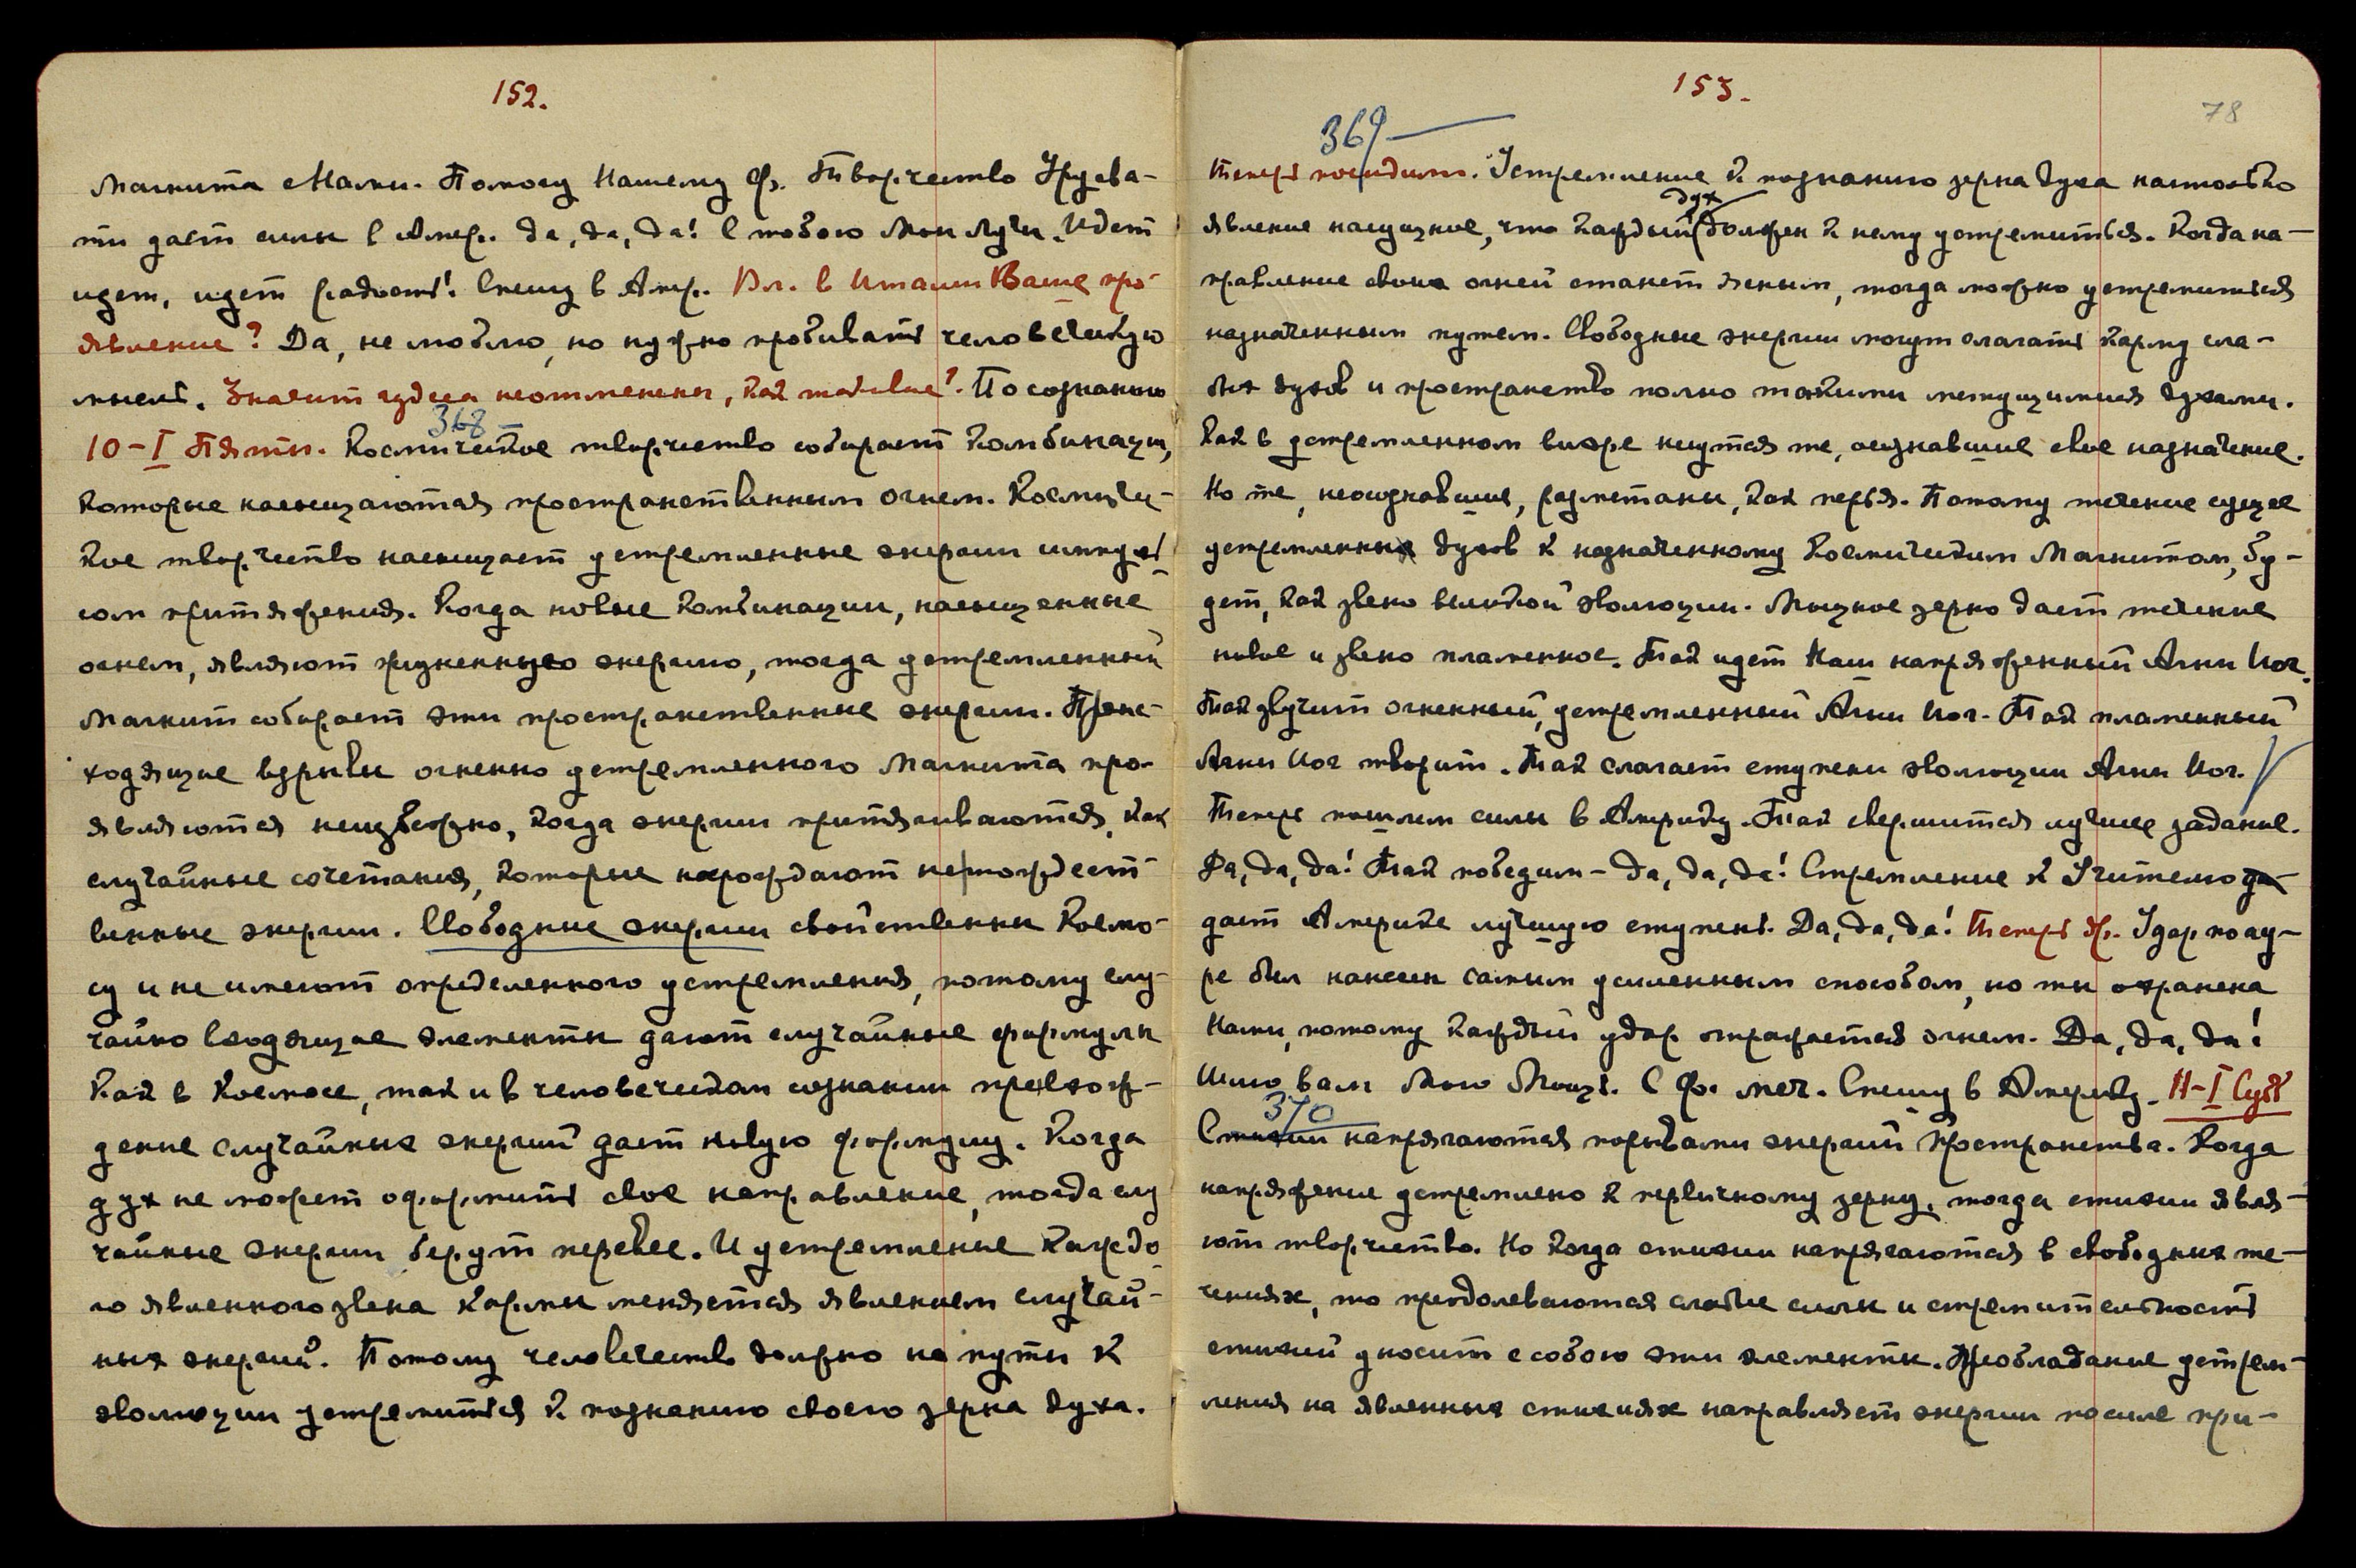 152.
Магнита Мании. Помогу Нашему Ф. Творчество Урусва-
ти дает силы в Амер. Да, да, да! С тобою Мои Лучи. Идет
идет, идет радость! Спешу в Амер. Вл. в Италии Ваше про-
явление? Да, не люблю, но нужно пробивать человеческую
мысль. Значит чудеса неотменены, как таковые? По сознанию
368 –
10-I Пятн. Космическое творчество собирает комбинации,
которые насыщаются пространственным огнем. Космичес-
кое творчество насыщает устремленные энергии импуль
сом притяжения. Когда новые комбинации, насыщенные
огнем, являют жизненную энергию, тогда устремленный
Магнит собирает эти пространственные энергии. Проис-
ходящие взрывы огненно устремленного Магнита про-
являются неизбежно, когда энергии притягиваются, как
случайные сочетания, которые нарождают нетождест-
венные энергии. Свободные энергии свойственны Космо-
су и не имеют определенного устремления, потому слу-
чайно входящие элементы дают случайные формулы
Как в Космосе, так и в человеческом сознании превхож-
дение случайных энергий дает новую формулу. Когда
дух не может оформить свое направление, тогда слу
чайные энергии берут перевес. И устремление каждо-
го явленного звена Кармы меняется явлением случай-
ных энергий. Потому человечество должно на пути к
эволюции устремиться к познанию своего зерна духа.
153.
78
369 –
Теперь посидим. Устремление к познанию зерна духа настолько
дух
явление насущное, что каждый должен к нему устремиться. Когда на-
правление своих огней станет ясным, тогда можно устремиться
назначенным путем. Свободные энергии могут слагать карму сла-
бых духов и пространство полно такими мятущимися духами.
Как в устремленном вихре несутся те, осознавшие свое назначение.
Но те, неосознавшие, разметаны, как перья. Потому течение сущее
устремленных духов к назначенному Космическим Магнитом, бу-
дет, как звено великой эволюции. Мощное зерно дает течение
новое и звено пламенное. Так идет Наш напряженный Агни Йог.
Так звучит огненный, устремленный Агни Йог. Так пламенный
Агни Йог творит. Так слагает ступени эволюции Агни Йог.
Теперь пошлем силы в Америку. Так свершится лучшее задание.
Да, да, да! Так победим – да, да, да! Стремление к Учителю
дает Америке лучшую ступень. Да, да, да! Теперь Ур. Удар по ау-
ре был нанесен самым усиленным способом, но ты охранена
Нами, потому каждый удар отражается огнем. Да, да, да!
Шлю вам Мою Мощь. С Ф. меч. Спешу в Америку. 11-I Субб
370
Стихии напрягаются порывами энергий пространства. Когда
напряжение устремлено к первичному зерну, тогда стихии явля-
ют творчество. Но когда стихии напрягаются в свободных те-
чениях, то преодолеваются слабые силы и стремительность
стихий уносит с собою эти элементы. Преобладание устрем-
ления на явленных стихиях направляет энергии по силе при-